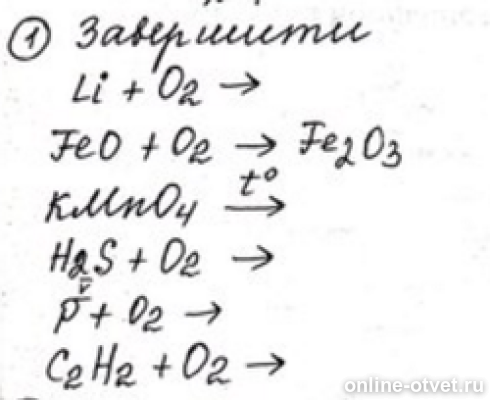 ① Завершити
Li + O₂ →
FeO + O₂ → Fe₂O₃
KMnO₄ t° →
H₂S + O₂ →
V
P + O₂ →
C₂H₂ + O₂ →
online-otvet.ru